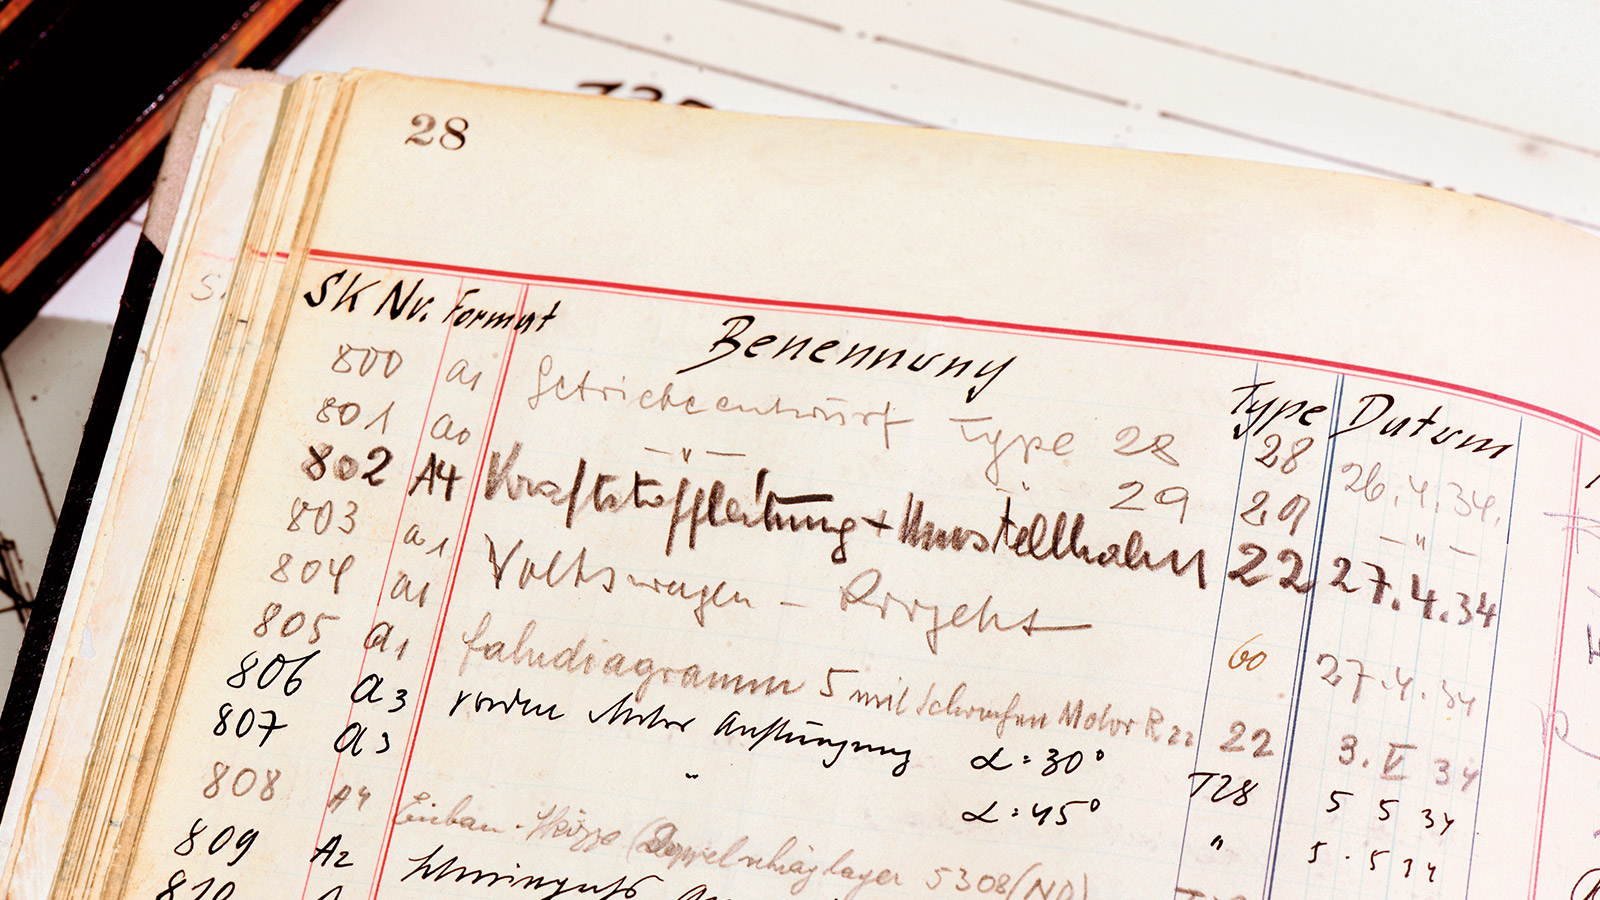 28
SK Nr. Format Benennung Type Datum
800 a1 Getriebeentwurf Type 28 28 26.4.34.
801 a0 —"— 29 29 —"—
802 A4 Kraftstoffleitung + Umstellhahn 22 27.4.34
803 a1 Volkswagen – Projekt 60 27.4.34
804 a1 Fahrdiagramm 5 mit Motor R22 22 3.V 34
805 a1
806 a3 vordere Motor Aufhängung α=30° T28 5 5 34
807 a3 " α=45° " 5.5 34
808 A4 Einbau-Skizze (Doppelschräglager 5308(ND)
809 A2
810